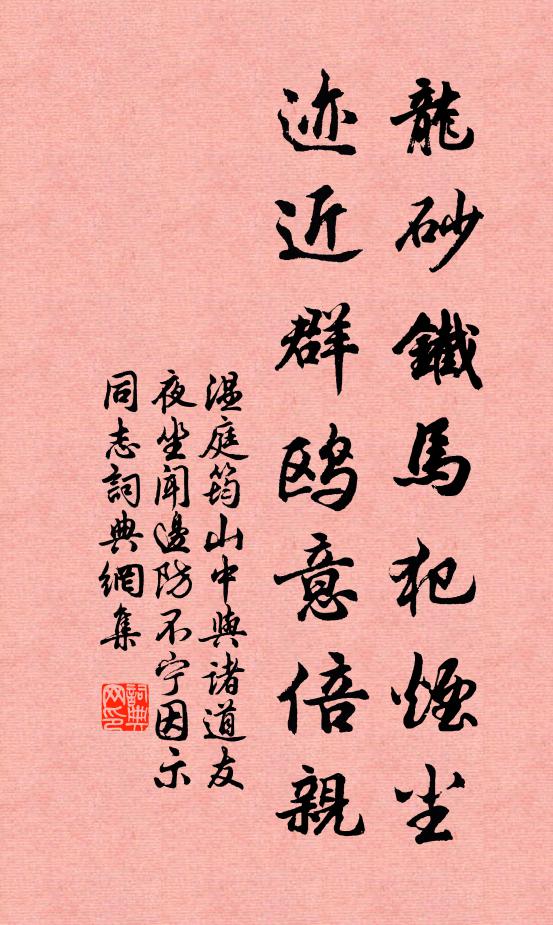 龍砂鐵馬犯煙尘
迹近群鸥意倍親
温庭筠山中與諸道友
夜坐聞邊防不宁因示
同志詞典網集
詞典网印